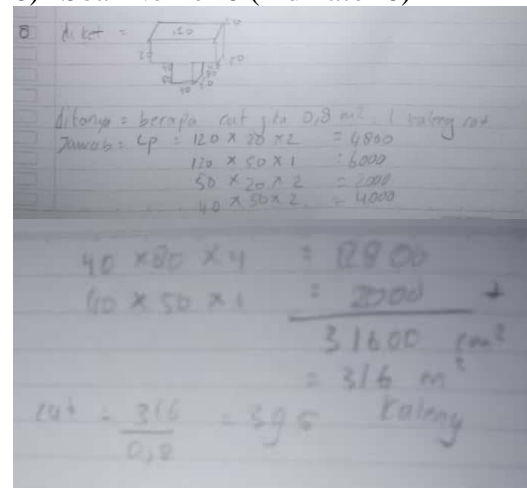 8 diket =
120 50
20 20
40 80
80
40 50
ditanya = berapa cat jika 0,8 m². 1 kaleng cat
Jawab = Lp = 120 x 20 x 2 = 4800
120 x 50 x 1 = 6000
50 x 20 x 2 = 2000
40 x 50 x 2 = 4000
40 x 80 x 4 = 12800
40 x 50 x 1 = 2000 +
31600 cm²
= 316 m²
cat = 316 = 395 kaleng
0,8